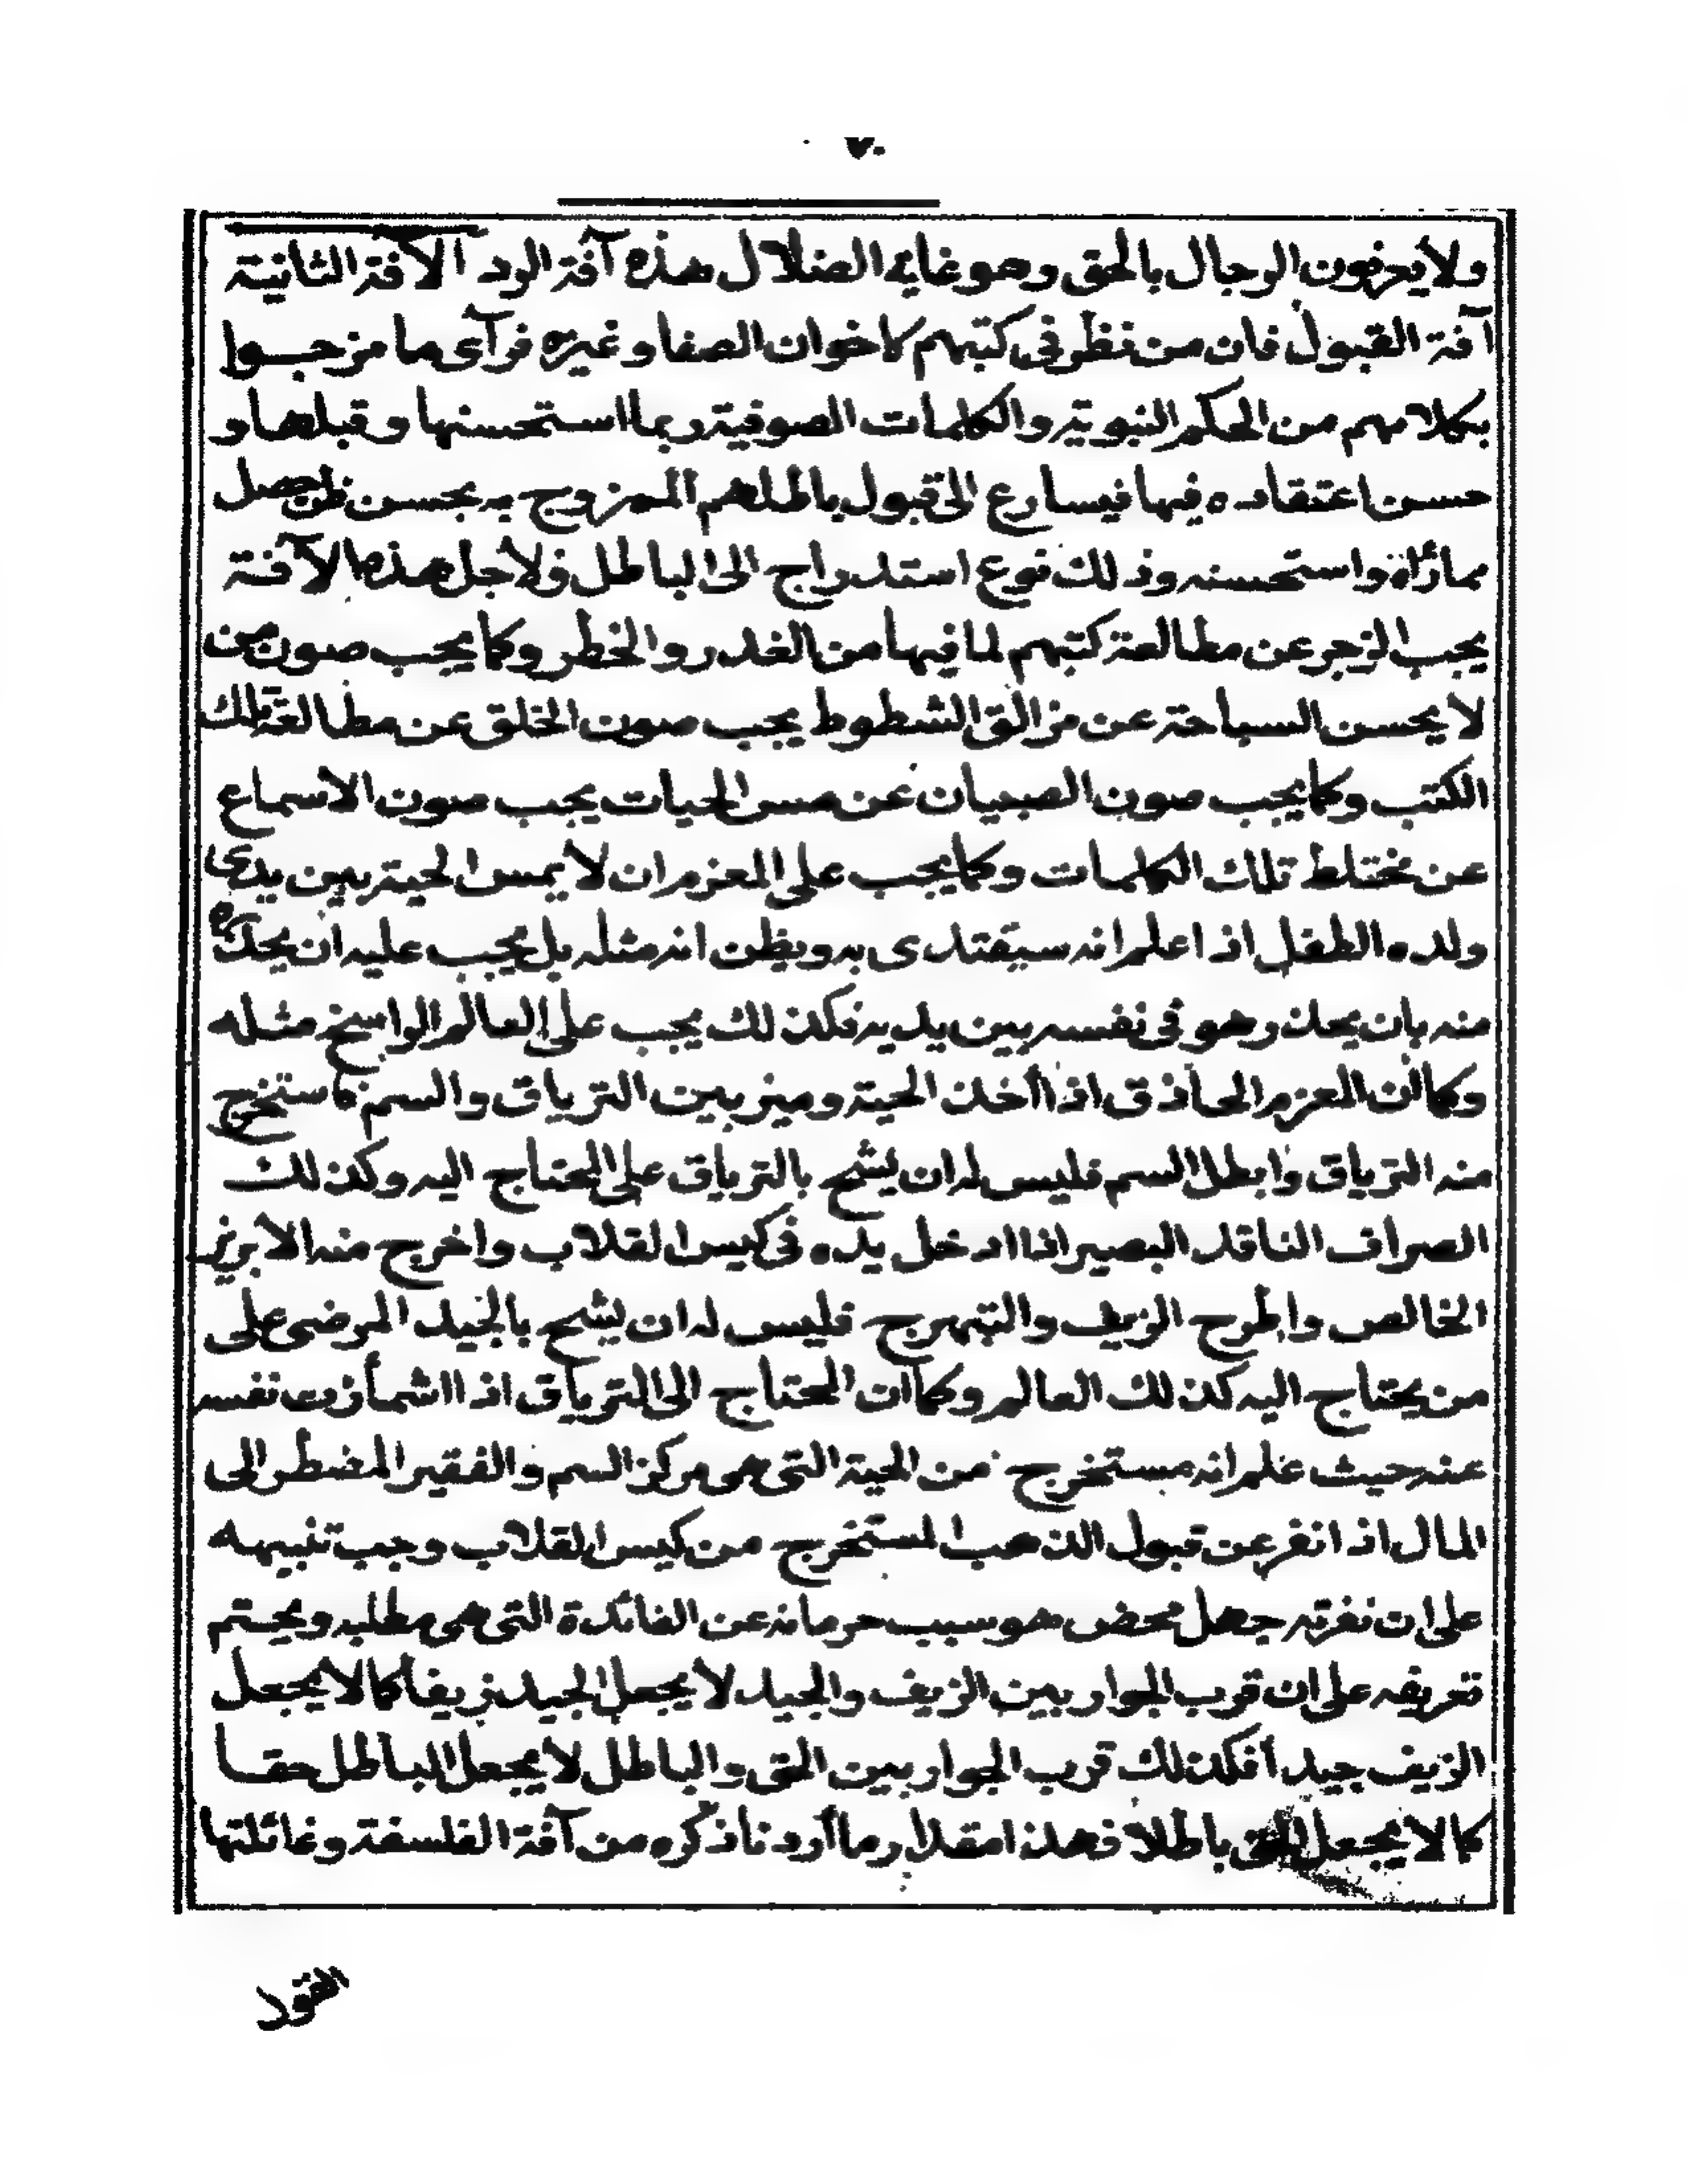 ٧٠
ولا يعرفون الرجال بالحق وهو غاية الضلال هذه آفة الرد الآفة الثانية
آفة القبول فان من نظر في كتبهم كاخوان الصفا وغيره فرآى ما مزجوا
بكلامهم من الحكم النبوية والكلمات الصوفية وربما استحسنها وقبلها و
حسن اعتقاده فيها فيسارع الى قبول باطلهم الممزوج به بحسن ظن حصل
مما رأاه واستحسنه وذلك نوع استدراج الى الباطل ولاجل هذه الآفة
يجب الزجر عن مطالعة كتبهم لما فيها من الغدر والخطر وكما يجب صون من
لا يحسن السباحة عن مزالق الشطوط يجب صون الخلق عن مطالعة تلك
الكتب وكما يجب صون الصبيان عن مس الحيات يجب صون الاسماع
عن مختلط تلك الكلمات وكما يجب على المعزم ان لا يمس الحية بين يدى
ولده الطفل اذا علم انه سيقتدى به ويظن انه مثله بل يجب عليه ان يحذره
منه بان يحذر هو في نفسه بين يديه فكذلك يجب على العالم الراسخ مثله
وكما ان المعزم الحاذق اذا أخذ الحية وميز بين الترياق والسم فاستخرج
منه الترياق وابطل السم فليس له ان يشح بالترياق على المحتاج اليه وكذلك
الصراف الناقد البصير اذا ادخل يده فى كيس القلاب واخرج منه الابريز
الخالص واطرح الزيف والتبهرج فليس له ان يشح بالجيد المرضى على
من يحتاج اليه كذلك العالم وكما ان المحتاج الى الترياق اذا اشمأزت نفسه
عنه حيث علم انه مستخرج من الحية التى هى مركز السم والفقير المضطر الى
المال اذا نفر عن قبول الذهب المستخرج من كيس القلاب وجب تنبيهه
على ان نفرته جهل محض هو سبب حرمانه عن الفائدة التى هى مطلبه ويحتم
تعريفه على ان قرب الجوار بين الزيف والجيد لا يجعل الجيد زيفا كما لا يجعل
الزيف جيدا فكذلك قرب الجوار بين الحق والباطل لا يجعل الباطل حقا
كما لا يجعل الحق باطلا فهذا مقدار ما أردنا ذكره من آفة الفلسفة وغائلتها
القول